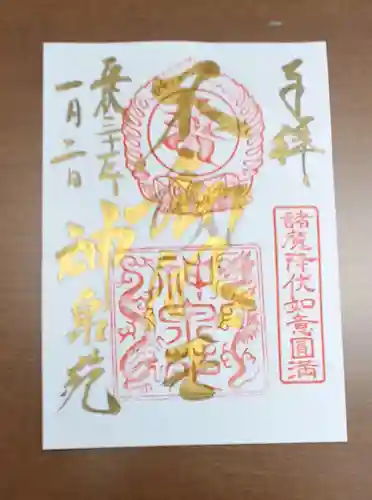 奉拝
諸魔降伏如意圓満
不動明王
神泉苑
平成三十年
一月二日
神泉苑